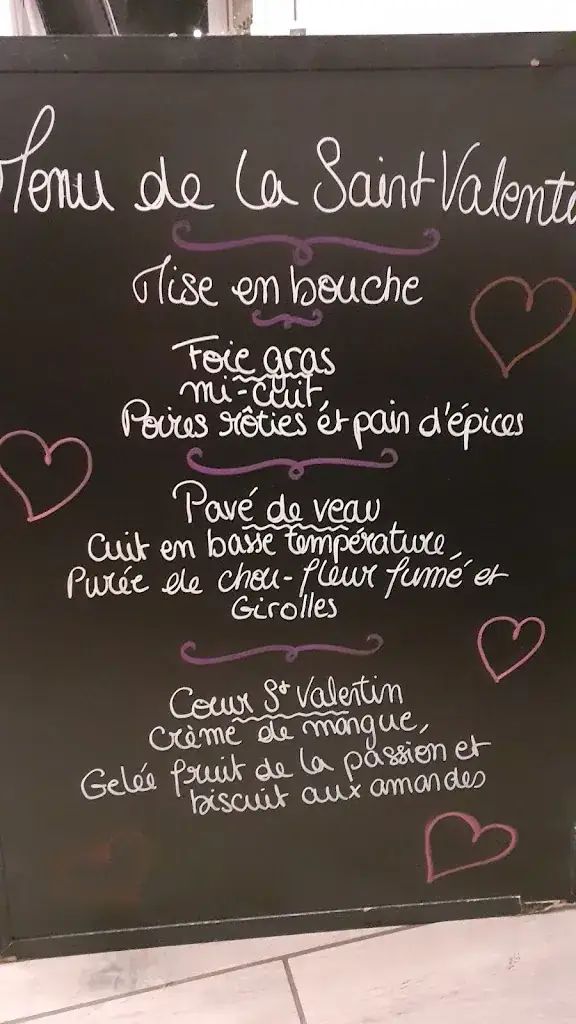 Menu de la Saint Valenti
Mise en bouche
Foie gras
mi-cuit,
Poires rôties et pain d'épices
Pavé de veau
Cuit en basse température,
Purée de chou-fleur fumé et
Girolles
Coeur St Valentin
Crème de mangue,
Gelée fruit de la passion et
biscuit aux amandes